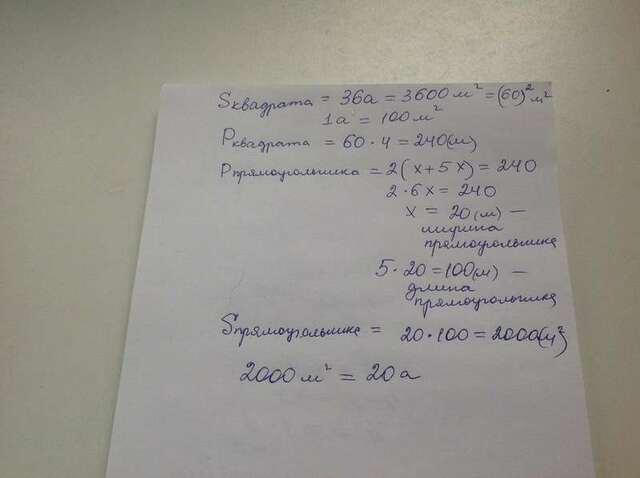 Sквадрата = 36а = 3600 м² = (60)² м²
1а = 100 м²
Pквадрата = 60 · 4 = 240(м)
Pпрямоугольника = 2(x + 5x) = 240
2 · 6x = 240
x = 20(м) —
ширина
прямоугольника
5 · 20 = 100(м) —
длина
прямоугольника
Sпрямоугольника = 20 · 100 = 2000(м²)
2000 м² = 20а